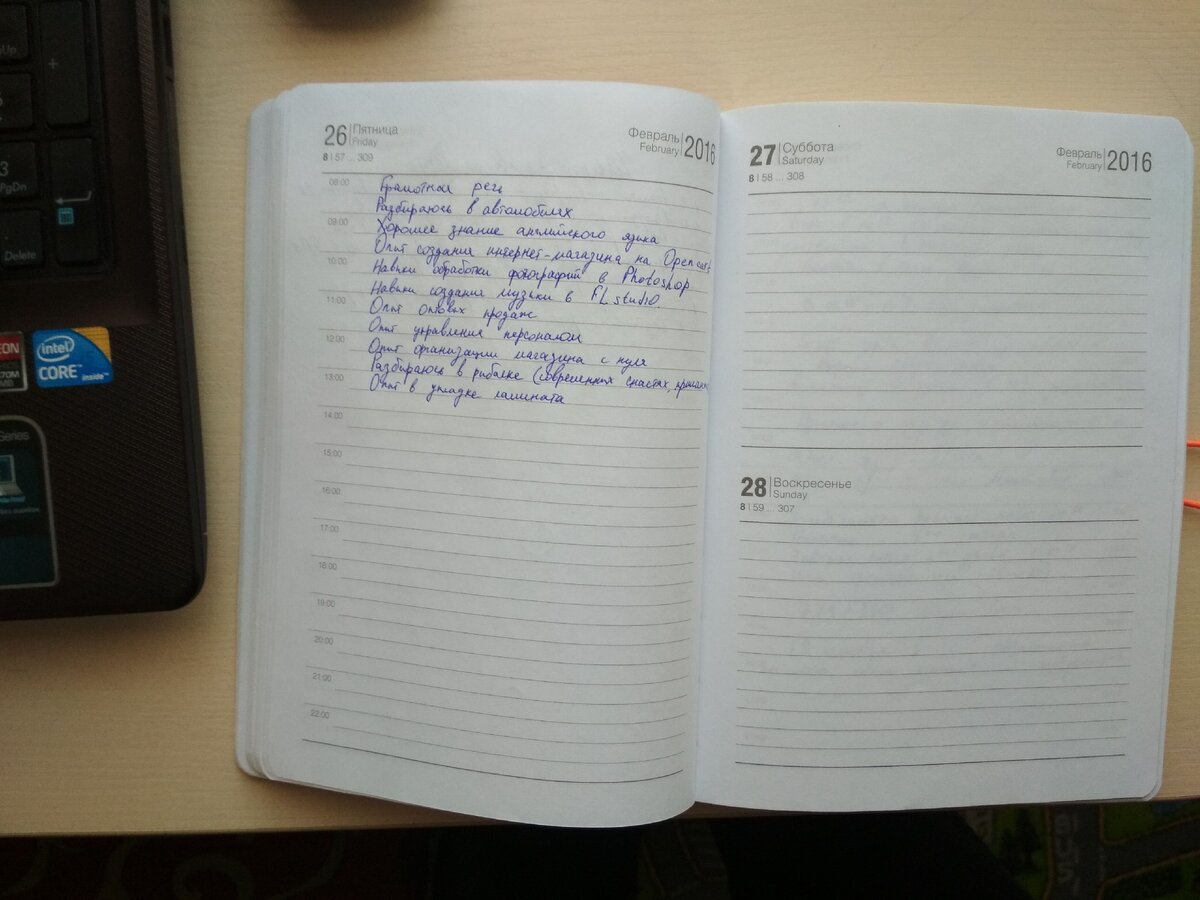 PgUp
+
3
PgDn
Delete
intel
CORE
inside™
Series
26 Пятница
Friday
8 | 57 ... 309
Февраль
February
2016
08:00
Грамотная речь
Разбираюсь в автомобилях
09:00
Хорошее знание английского языка
Опыт создания интернет-магазина на Opencart
10:00
Навыки обработки фотографий в Photoshop
Навыки создания музыки в FL studio
11:00
Опыт оптовых продаж
Опыт управления персоналом
12:00
Опыт организации магазина с нуля
Разбираюсь в рыбалке (современных снастях,
13:00
Опыт в укладке ламината
14:00
15:00
16:00
17:00
18:00
19:00
20:00
21:00
22:00
27 Суббота
Saturday
8 | 58 ... 308
Февраль
February
2016
28 Воскресенье
Sunday
8 | 59 ... 307